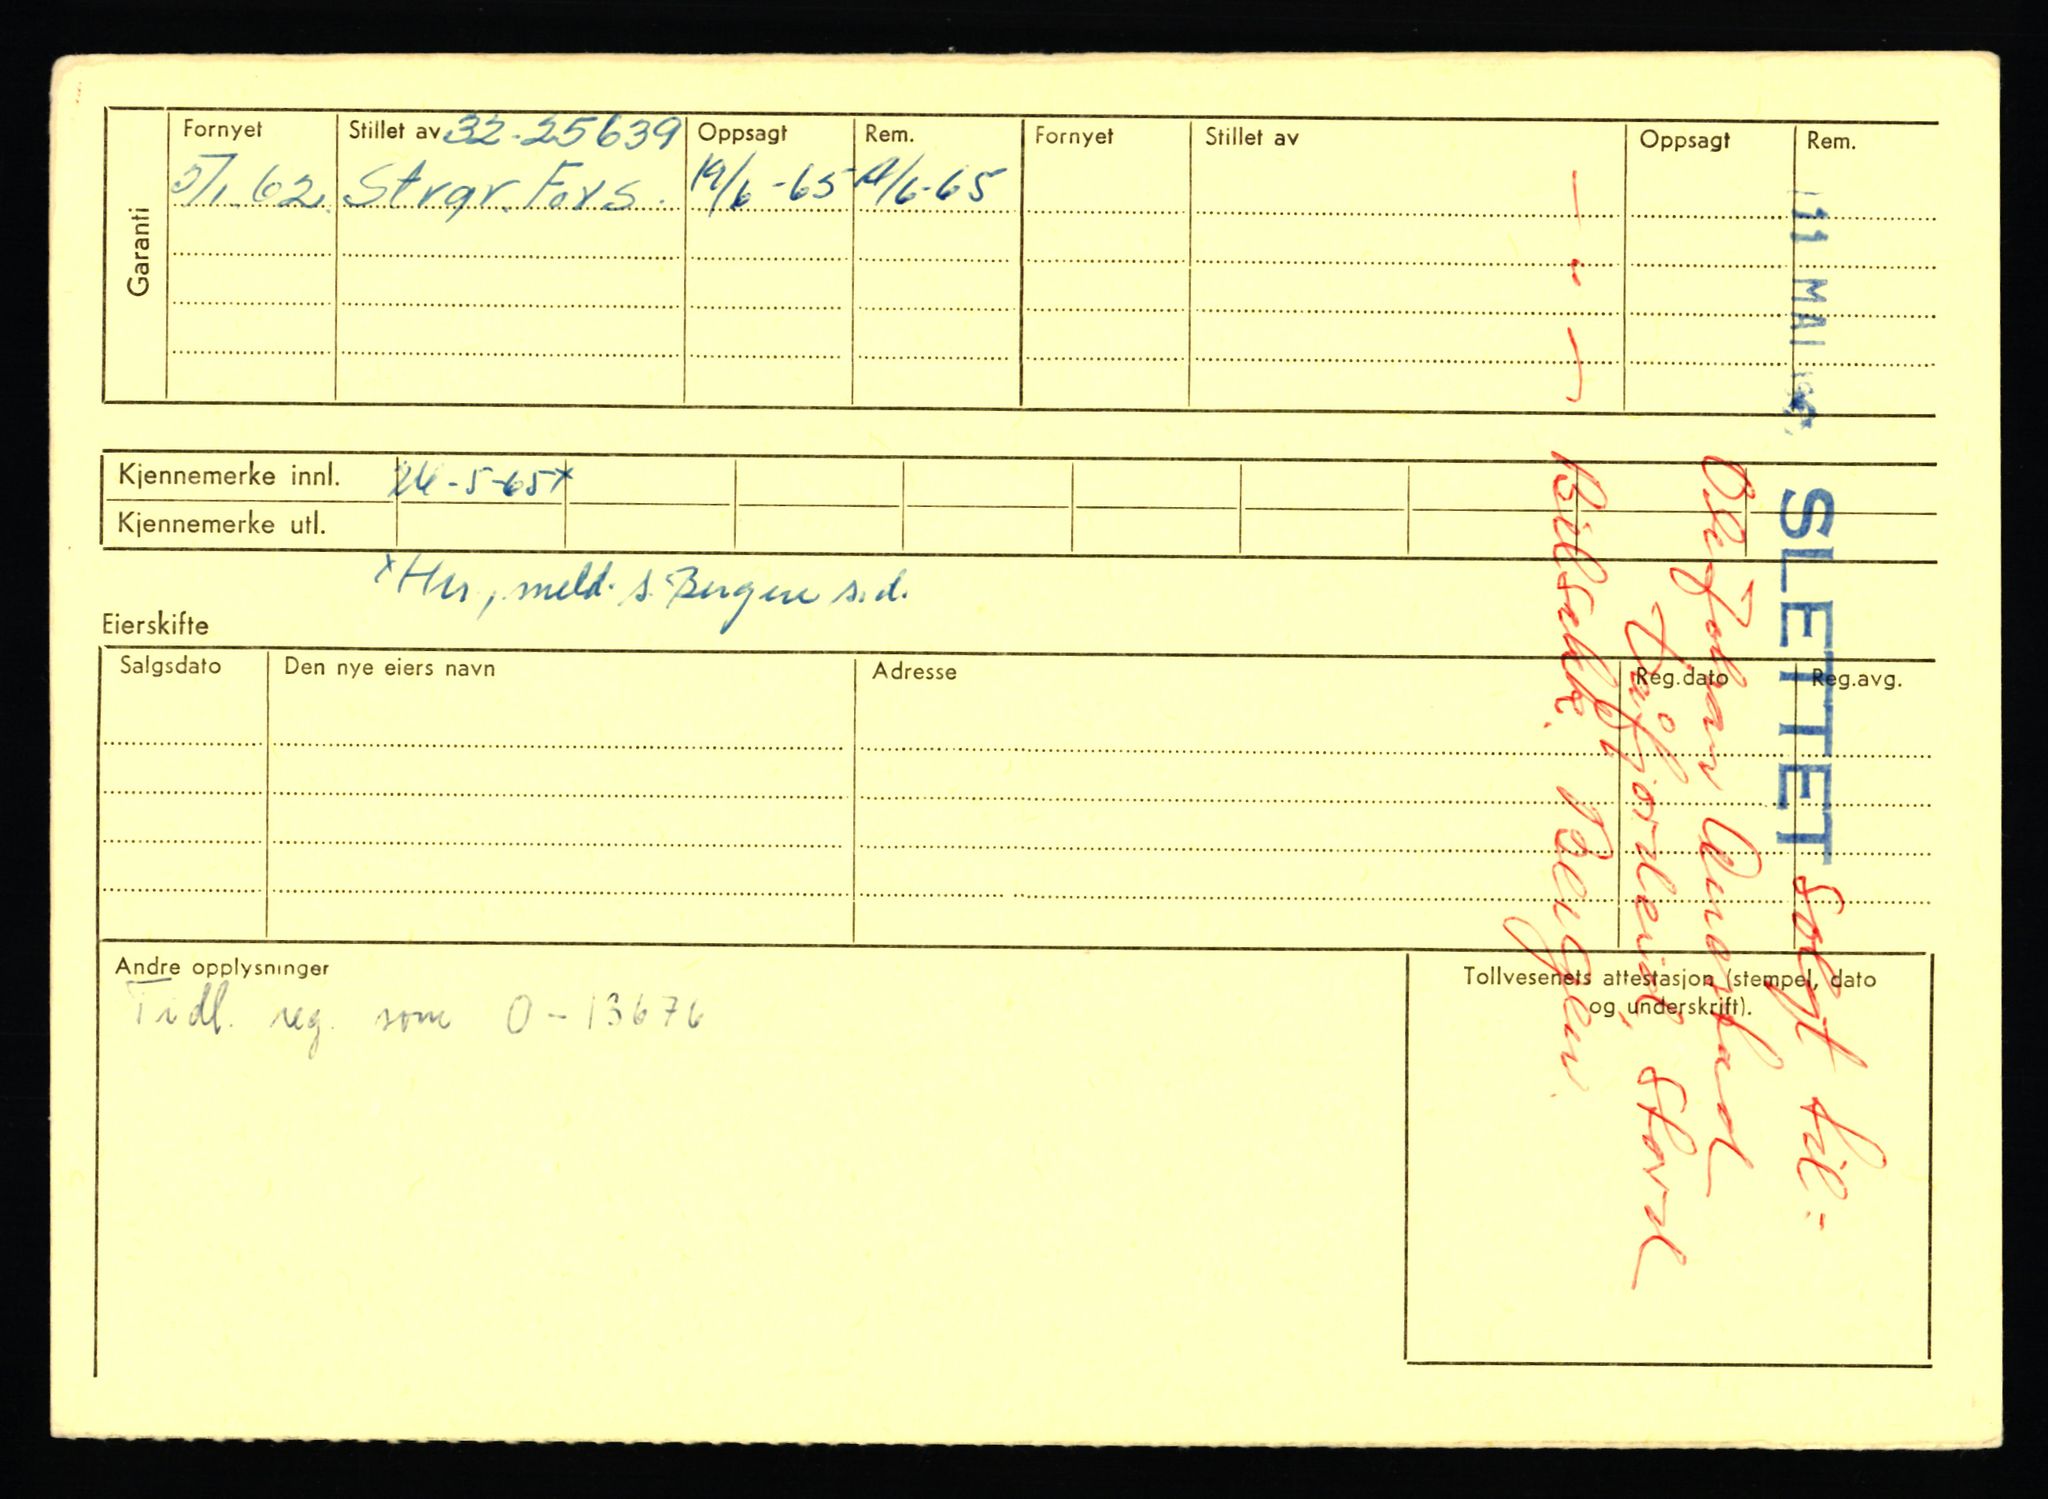 Garanti
Fornyet Stillet av 32-25639 Oppsagt Rem. Fornyet Stillet av Oppsagt Rem.
5/1-62. Strgr. Fors. 19/6-65 /6-65
Kjennemerke innl. 26-5-65x
Kjennemerke utl.
x Her, meld. s. Bergen s.d.
Eierskifte
Salgsdato Den nye eiers navn Adresse Reg.dato Reg.avg.
Andre opplysninger
Tidl. reg. som O-13676
Tollvesenets attestasjon (stempel, dato
og underskrift).
11 MAI SLETTET Solgt til:
Johan
Stord
Bergen.